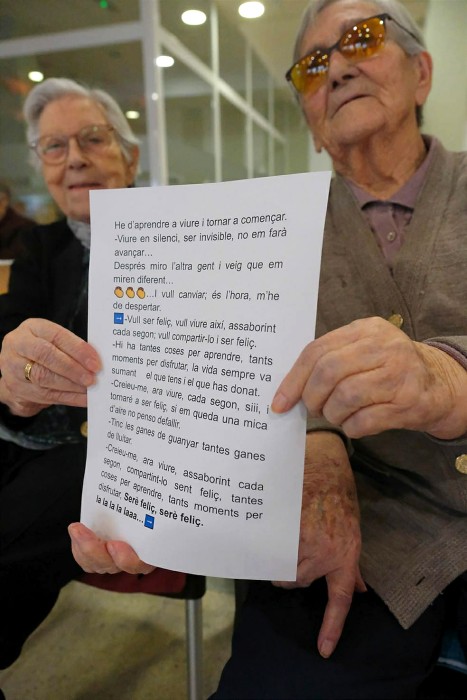 He d'aprendre a viure i tornar a començar.
-Viure en silenci, ser invisible, no em farà
avançar...
Després miro l'altra gent i veig que em
miren diferent...
👏👏👏...I vull canviar; és l'hora, m'he
de despertar.
➡️-Vull ser feliç, vull viure així, assaborint
cada segon; vull compartir-lo i ser feliç.
-Hi ha tantes coses per aprendre, tants
moments per disfrutar, la vida sempre va
sumant el que tens i el que has donat.
-Creieu-me, ara viure, cada segon, siii, i
tornaré a ser feliç, si em queda una mica
d'aire no penso defallir.
-Tinc les ganes de guanyar tantes ganes
de lluitar.
-Creieu-me, ara viure, assaborint cada
segon, compartint-lo sent feliç, tantes
coses per aprendre, tants moments per
disfrutar. Seré feliç, seré feliç.
la la la la laaa...➡️